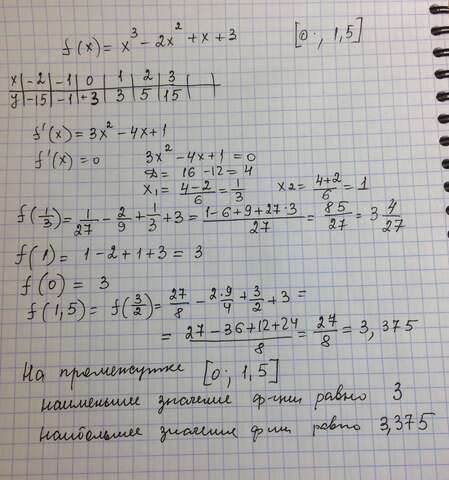 f(x) = x³ - 2x² + x + 3 [0; 1,5]
x | -2 | -1 | 0 | 1 | 2 | 3
y | -15 | -1 | +3 | 3 | 5 | 15
f'(x) = 3x² - 4x + 1
f'(x) = 0 3x² - 4x + 1 = 0
D = 16 - 12 = 4
x₁ = (4-2)/6 = 1/3 x₂ = (4+2)/6 = 1
f(1/3) = 1/27 - 2/9 + 1/3 + 3 = (1-6+9+27·3)/27 = 85/27 = 3 4/27
f(1) = 1 - 2 + 1 + 3 = 3
f(0) = 3
f(1,5) = f(3/2) = 27/8 - 2·9/4 + 3/2 + 3 =
= (27-36+12+24)/8 = 27/8 = 3,375
На промежутке [0; 1,5]
наименьшее значение ф-ции равно 3
наибольшее значение ф-ии равно 3,375